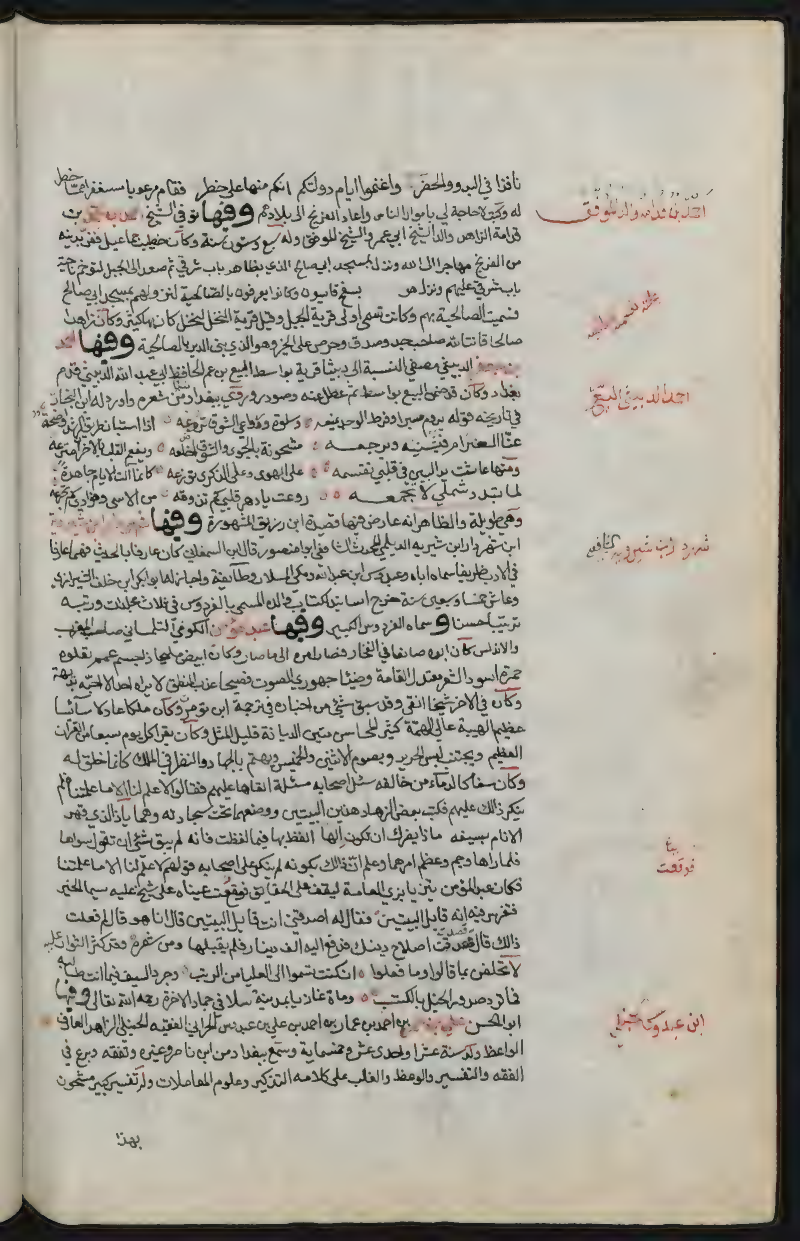 نافذا في البدو والحضر واغتنموا ايام دولتكم انكم منها على خطر فقام مرعوبا يستغفر مما خطر
له وكبر لا حاجة لي باموال الناس واعاد الفرنج الى بلادهم وفيها توفي الشيخ احمد بن محمد بن
قدامة الزاهد والد الشيخ ابي عمر والشيخ الموفق وله سبع وستون سنة وكان خطيب جماعيل ففر بدينه
من الفرنج مهاجرا الى الله ونزل بمسجد ابي صالح الذي بظاهر باب شرقي ثم صعد الى الجبل لتوخم ناحية
باب شرقي عليهم ونزل هو بسفح قاسيون وكانوا يعرفون بالصالحية لنزولهم بمسجد ابي صالح
فسميت الصالحية بهم وكانت تسمى اولا قرية الجبل وقيل قرية النخل لنخل كان بها كثير وكان زاهدا
صالحا قانتا لله صاحب جد وصدق وحرص على الخير وهو الذي بنى الدير بالصالحية وفيها احمد
الدبيثي النسبة الى دبيثا قرية بواسط البيع بن عم الحافظ ابي عبد الله الدبيثي قدم
بغداد وكان قد ضمن البيع بواسط ثم عطل عنه وصودر وروى ببغداد من شعره واورد له ابن النجار
في تاريخه قوله يروم صبرا وفرط الوجد يمنعه وسلوة ودواعي الشوق تردعه اذا استبان طريق الرشد واضحة
عن الغرام فيثنيه ويرجعه مشحونة بالجوى والشوق اضلعه ومفعم القلب بالاحزان مترعه
ومنها عاثت يد البين في قلبي تقسمه على الهوى وعلى الذكرى توزعه كانما آلت الايام جاهدة
لما تبدد شملي لا تجمعه روعت يا دهر قلبي كم تذوقه من الاسى وفؤادي كم تجرعه
وهي طويلة والظاهر انه عارض فيها قصيدة ابن زريق المشهورة وفيها شهردار ابن شيرويه
ابن شهردار ابن شيرويه الديلمي المحدث الشافعي ابو منصور قال ابن السمعاني كان عارفا بالحديث فهما عارفا
في الادب ظريفا سمع اباه وعبدوس ابن عبد الله ومكي السلار وطائفة واجاز له ابو بكر ابن خلف الشيرازي
وعاش خمسا وسبعين سنة خرج اسانيد لكتاب والده المسمى بالفردوس في ثلاث مجلدات ورتبه
ترتيبا حسنا وسماه الفردوس الكبير وفيها عبد المؤمن الكومي التلمساني صاحب المغرب
والاندلس كان ابوه صانعا في الفخار فصار امره الى ما صار وكان ابيض مليحا ذا جسم عمم تعلوه
حمرة اسود الشعر معتدل القامة وضيئا جهوري الصوت فصيحا عذب المنطق لا يراه احد الا احبه بديهة
وكان في الاخر شيخا انقى وقد سبق شيء من اخباره في ترجمة ابن تومرت وكان ملكا عادلا سائسا
عظيم الهيبة عالي الهمة كثير المحاسن متين الديانة قليل المثل وكان يقرا كل يوم سبعا من القران
العظيم ويجتنب لبس الحرير ويصوم الاثنين والخميس ويهتم بالجهاد والنظر في الملك كانما خلق له
وكان سفاكا لدماء من خالفه سئل اصحابه مسئلة القاها عليهم فقالوا لا علم لنا الا ما علمتنا فلم
ينكر ذلك عليهم فكتب بعض الزهاد هذين البيتين ووضعهما تحت سجادته وهما يا ذا الذي قهر
الانام بسيفه ماذا يضرك ان تكون الها الفظ بها فيما لفظت فانه لم يبق شيء ان تقول سواها
فلما راها وجم وعظم امرها وعلم ان ذلك بكونه لم ينكر على اصحابه قولهم لا علم لنا الا ما علمتنا
فكان عبد المؤمن يتزيا بزي العامة ليقف على الحقائق فوقعت عيناه على شيخ عليه سيما الخير
فتفرس فيه انه قايل البيتين فقال له اصدقني انت قايل البيتين قال انا هو قال لم فعلت
ذلك قال قصدت اصلاح دينك فدفع اليه الف دينار فلم يقبلها ومن شعره وقد كثر الثوار عليه
لا تحفلن بما قالوا وما فعلوا ان كنت تسموا الى العليا من الرتب وجرد السيف فيما انت طالبه
فما ترد صدور الخيل بالكتب ومات غازيا بمدينة سلا في جماد الاخرة رحمه الله تعالى وفيها
ابو الحسن علي بن احمد بن عمار بن احمد بن علي بن عبدوس الحراني الفقيه الحنبلي الزاهد العارف
الواعظ ولد سنة عشر او احدى عشر وخمسماية وسمع ببغداد من ابن ناصر وغيره وتفقه وبرع في
الفقه والتفسير والوعظ والغالب على كلامه التذكير وعلوم المعاملات وله تفسير كبير مشحون
بهذا
احمد بن قدامه والد الموفق
احمد الدبيثي البيع
شهردار ابن شيرويه الشافعي
فوقعت
ابن عبدوس الحنبلي